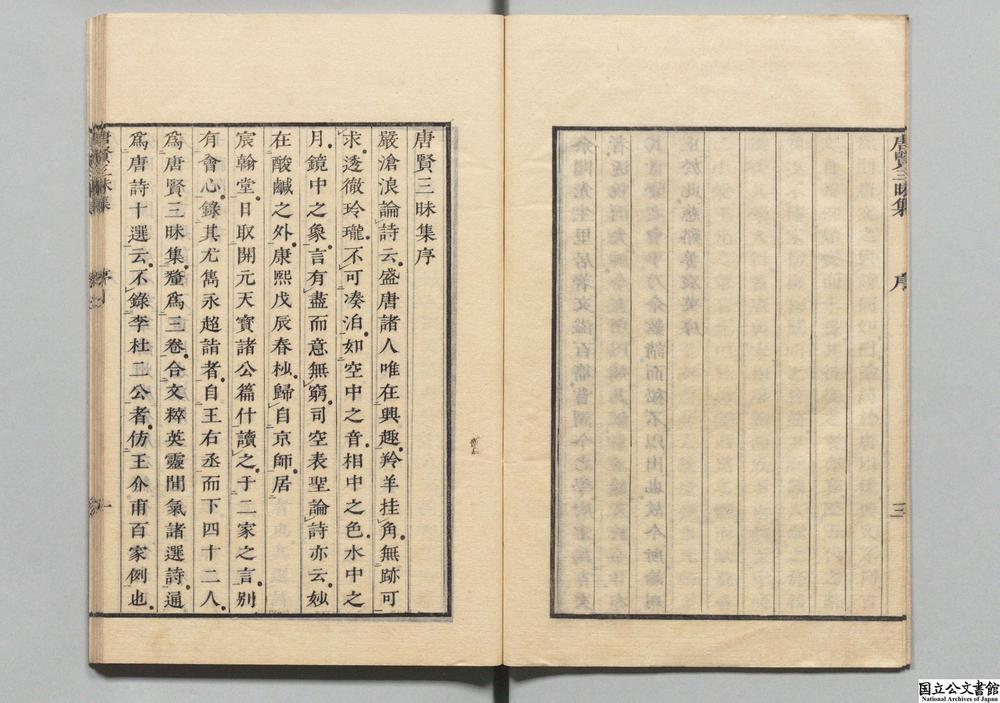 唐賢三昧集
序
三
唐賢三昧集序
嚴滄浪論詩云盛唐諸人唯在興趣羚羊挂角無跡可
求透徹玲瓏不可凑泊如空中之音相中之色水中之
月鏡中之象言有盡而意無窮司空表聖論詩亦云妙
在酸鹹之外康熙戊辰春杪歸自京師居
宸翰堂日取開元天寶諸公篇什讀之于二家之言別
有會心錄其尤雋永超詣者自王右丞而下四十二人
爲唐賢三昧集釐爲三卷合文粹英靈閒氣諸選詩通
爲唐詩十選云不錄李杜二公者仿王介甫百家例也
唐賢三昧集
序
一
国立公文書館
National Archives of Japan